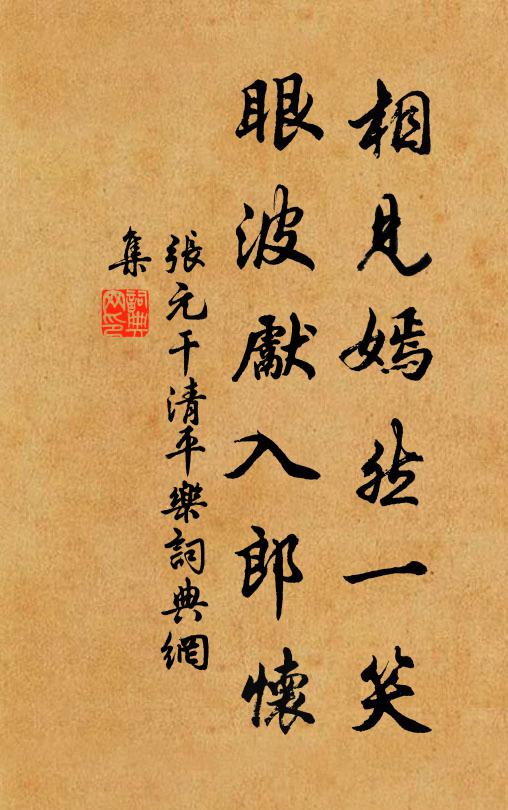 相見嫣然一笑
眼波獻入郎懷
張元干清平樂詞典網
集
詞典
网印